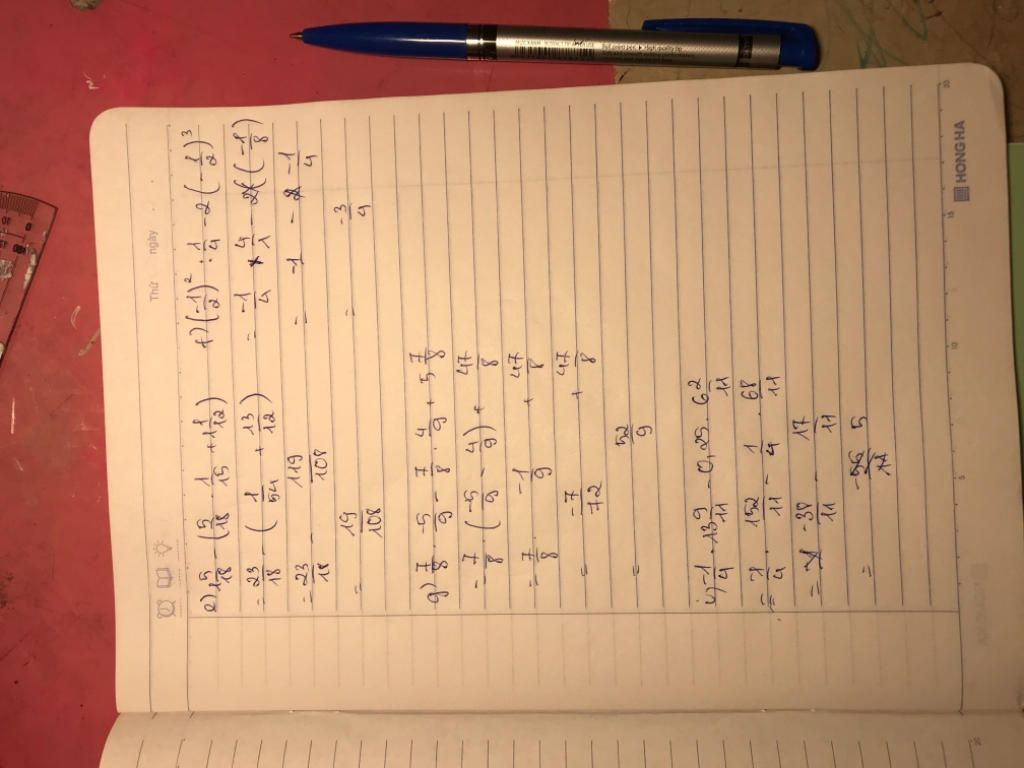 Thứ ngày
e) 1 5/18 - (5/18 . 1/15 + 1 1/12)
= 23/18 - (1/54 + 13/12)
= 23/18 - 119/108
= 19/108
f) (-1/2)² : 1/4 - 2(-1/2)³
= -1/4 × 4/1 - 2(-1/8)
= -1 - -1/4
= -3/4
g) 7/8 . -5/9 - 7/8 . 4/9 + 5 7/8
= 7/8 . (-5/9 - 4/9) + 47/8
= 7/8 . -1/9 + 47/8
= -7/72 + 47/8
= 52/9
i) -1/4 . 13 9/11 - 0,25 . 6 2/11
= -1/4 . 152/11 - 1/4 . 68/11
= -38/11 - 17/11
= 5
HONG HA
5
10
15
20